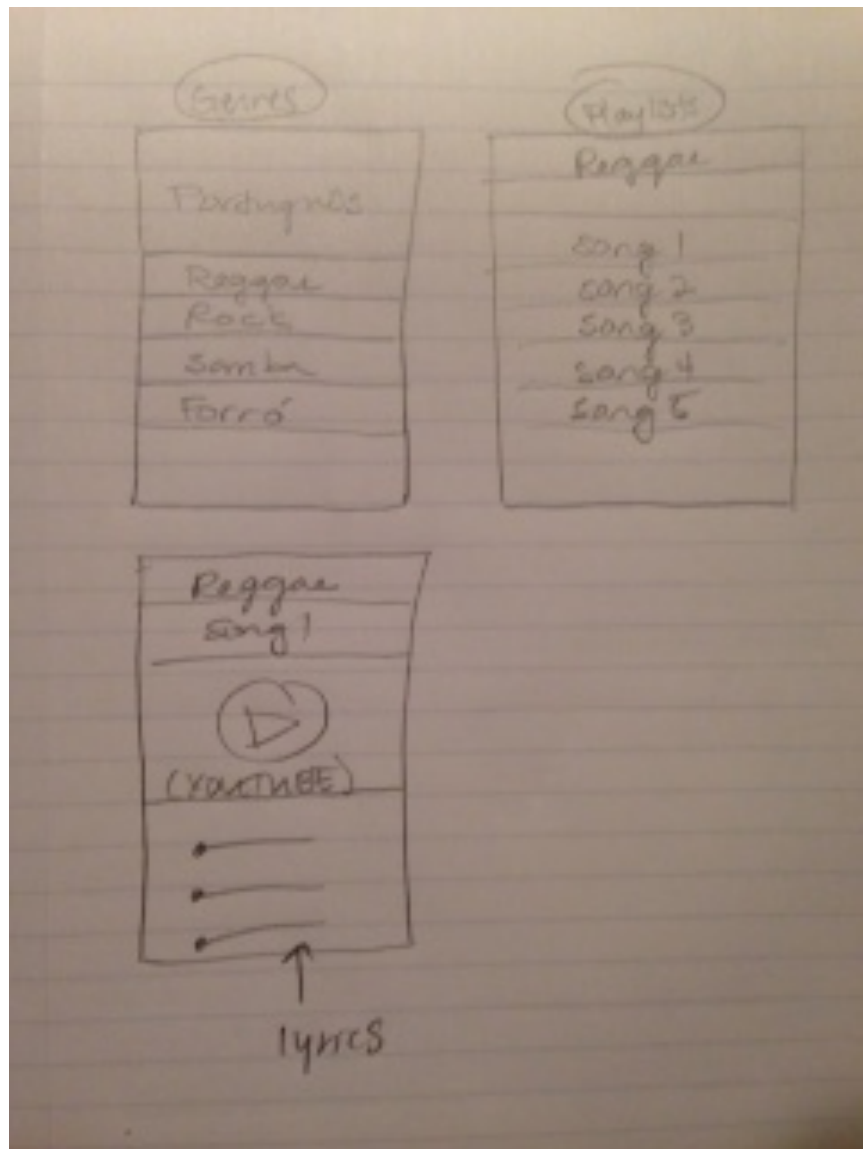 Genres
Portugués
Reggae
Rock
Samba
Forró
Playlists
Reggae
song 1
song 2
song 3
song 4
song 5
Reggae
song 1
(YOUTUBE)
lyrics